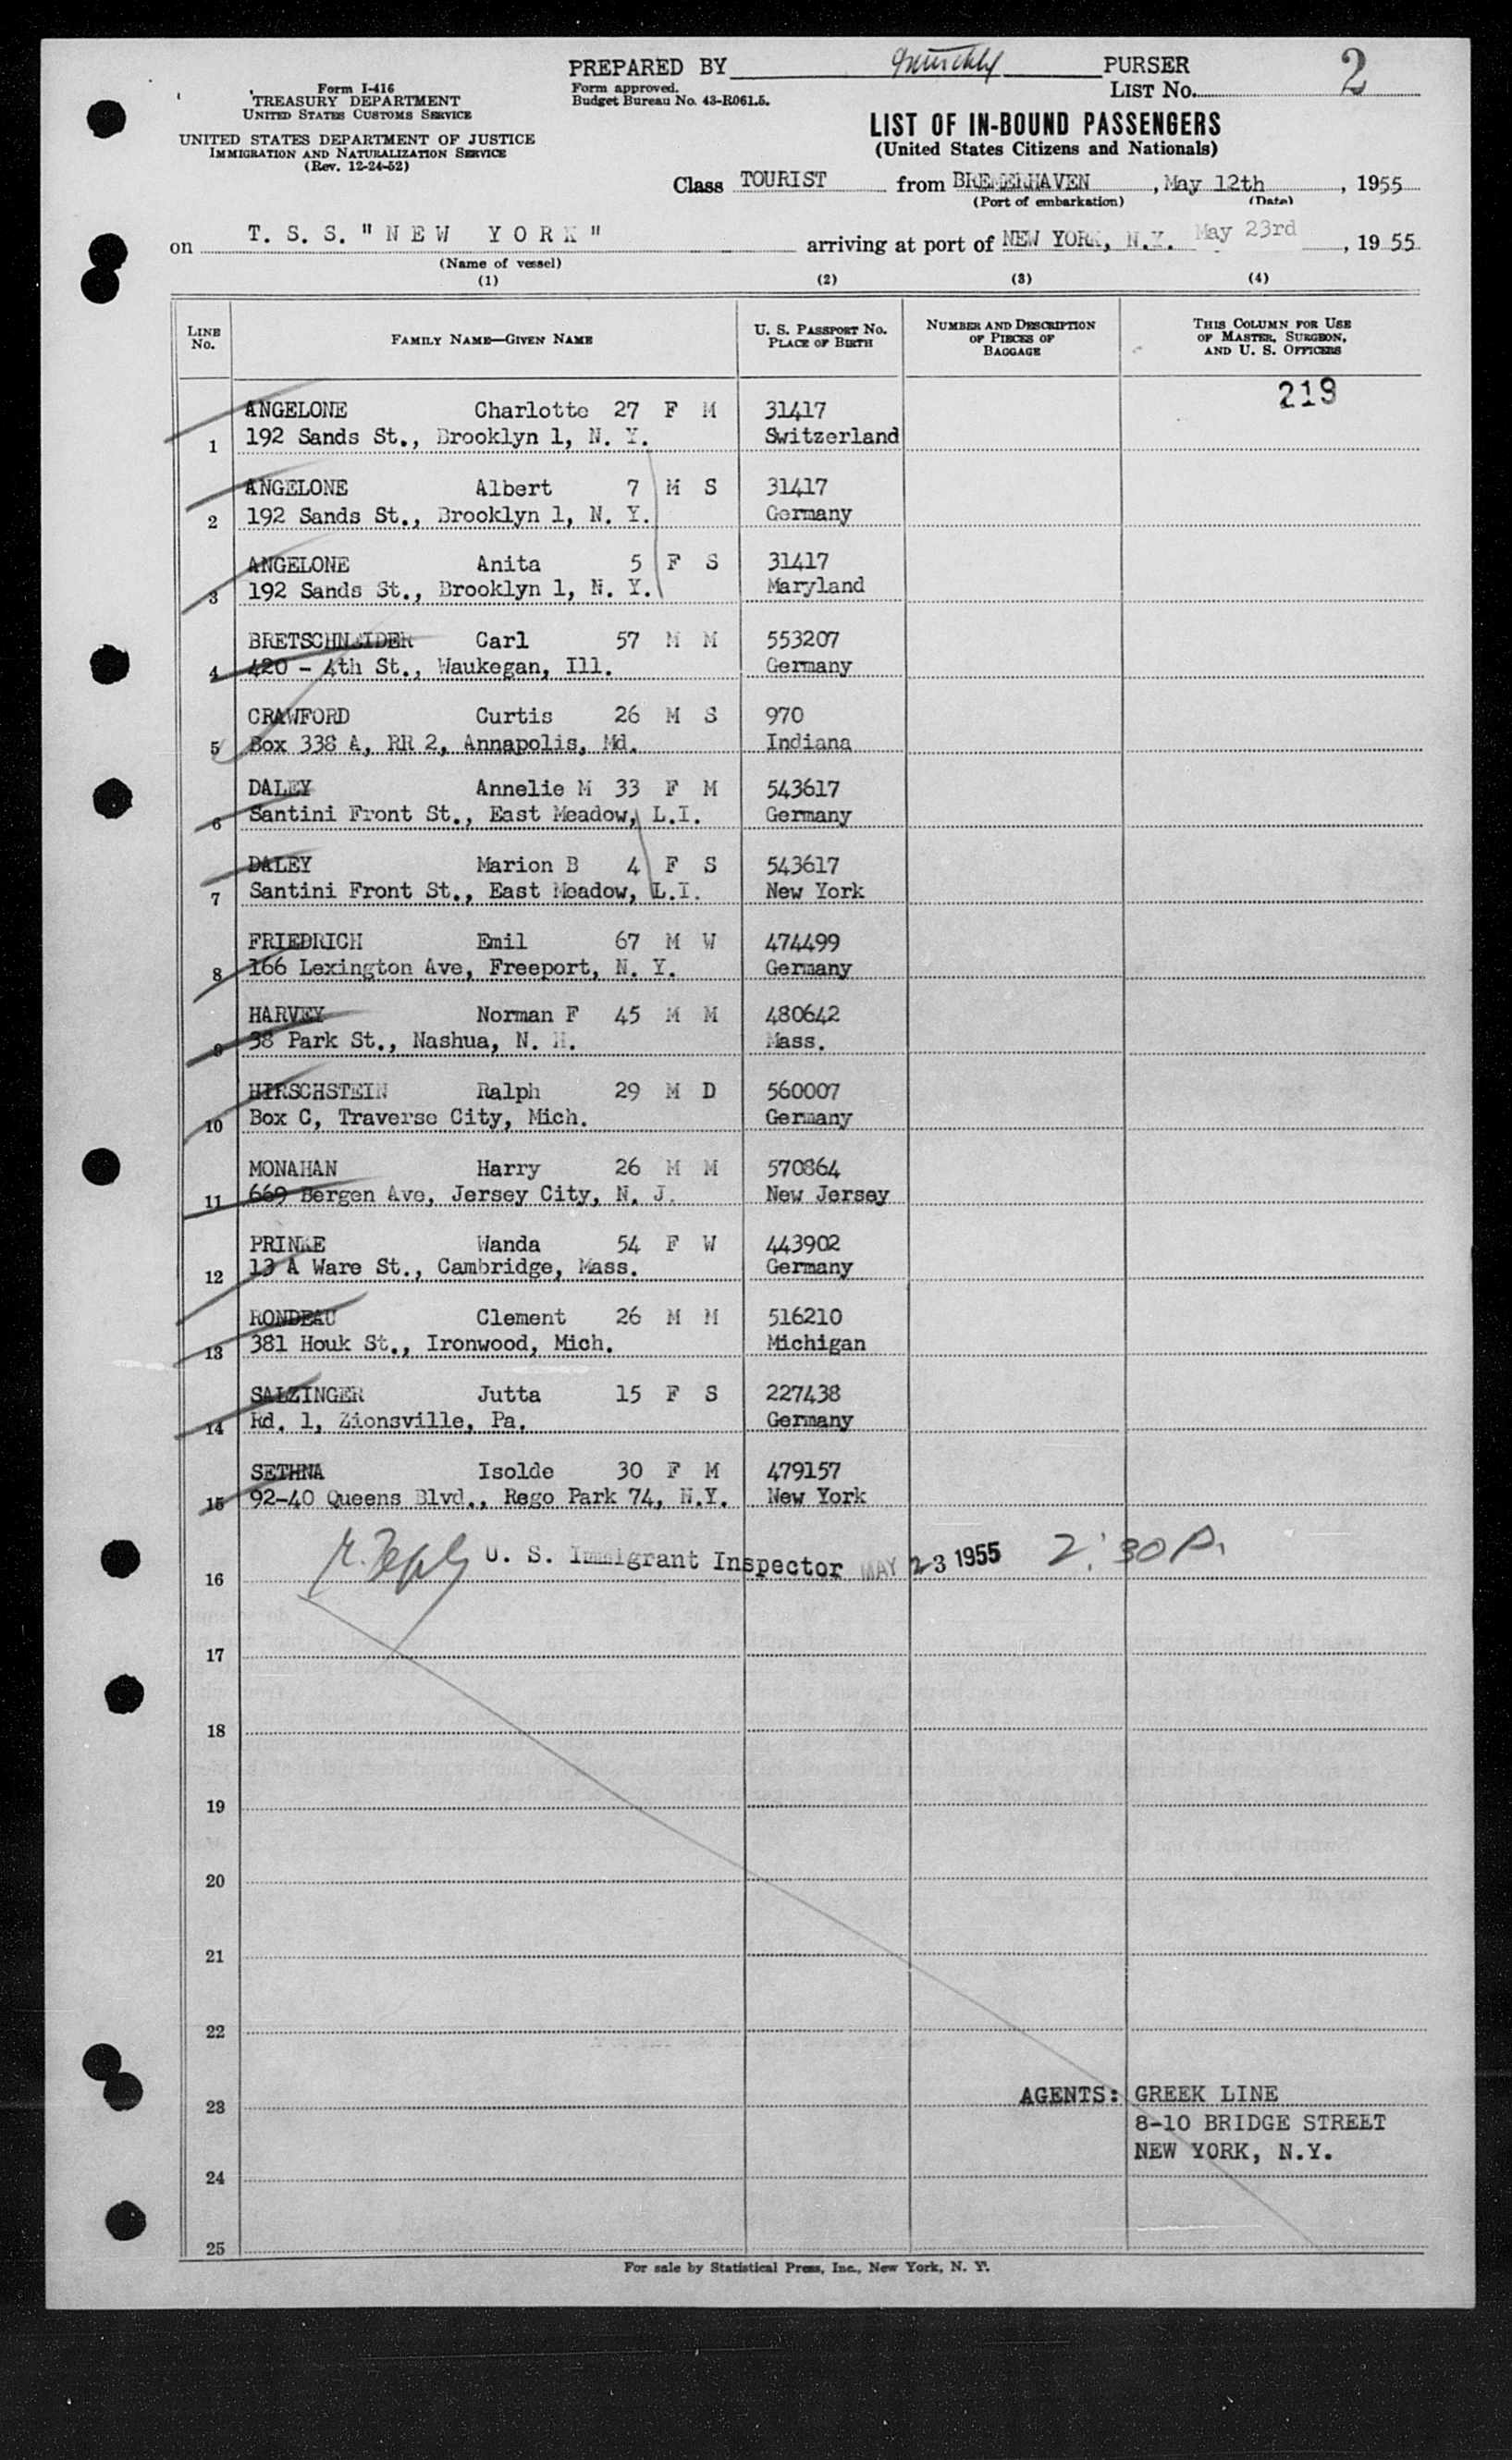 PREPARED BY PURSER
Form I-416
TREASURY DEPARTMENT
UNITED STATES CUSTOMS SERVICE
UNITED STATES DEPARTMENT OF JUSTICE
IMMIGRATION AND NATURALIZATION SERVICE
(Rev. 12-24-52)
Form approved.
Budget Bureau No. 43-R061.5.
LIST No. 2
LIST OF IN-BOUND PASSENGERS
(United States Citizens and Nationals)
Class TOURIST from BREMERHAVEN, May 12th, 1955
(Port of embarkation) (Date)
on T. S. S. "NEW YORK" arriving at port of NEW YORK, N.Y. May 23rd, 1955
(Name of vessel)
(1) (2) (3) (4)
LINE No. FAMILY NAME—GIVEN NAME U. S. PASSPORT NO. PLACE OF BIRTH NUMBER AND DESCRIPTION OF PIECES OF BAGGAGE THIS COLUMN FOR USE OF MASTER, SURGEON, AND U. S. OFFICERS
219
ANGELONE Charlotte 27 F M 31417
1 192 Sands St., Brooklyn 1, N. Y. Switzerland
ANGELONE Albert 7 M S 31417
2 192 Sands St., Brooklyn 1, N. Y. Germany
ANGELONE Anita 5 F S 31417
3 192 Sands St., Brooklyn 1, N. Y. Maryland
BRETSCHNEIDER Carl 57 M M 553207
4 420 - 4th St., Waukegan, Ill. Germany
CRAWFORD Curtis 26 M S 970
5 Box 338 A, RR 2, Annapolis, Md. Indiana
DALEY Annelie M 33 F M 543617
6 Santini Front St., East Meadow, L.I. Germany
DALEY Marion B 4 F S 543617
7 Santini Front St., East Meadow, L.I. New York
FRIEDRICH Emil 67 M W 474499
8 166 Lexington Ave, Freeport, N. Y. Germany
HARVEY Norman F 45 M M 480642
9 38 Park St., Nashua, N. H. Mass.
HIRSCHSTEIN Ralph 29 M D 560007
10 Box C, Traverse City, Mich. Germany
MONAHAN Harry 26 M M 570864
11 669 Bergen Ave, Jersey City, N. J. New Jersey
PRINKE Wanda 54 F W 443902
12 13 A Ware St., Cambridge, Mass. Germany
RONDEAU Clement 26 M M 516210
13 381 Houk St., Ironwood, Mich. Michigan
SALZINGER Jutta 15 F S 227438
14 Rd. 1, Zionsville, Pa. Germany
SETHNA Isolde 30 F M 479157
15 92-40 Queens Blvd., Rego Park 74, N.Y. New York
U. S. Immigrant Inspector MAY 23 1955 2:30 P.
16
17
18
19
20
21
22
23 AGENTS: GREEK LINE
8-10 BRIDGE STREET
NEW YORK, N.Y.
24
25
For sale by Statistical Press, Inc., New York, N. Y.